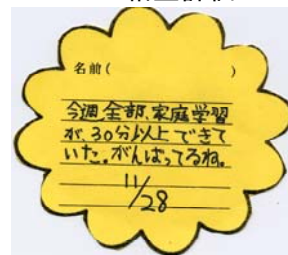 名前(　　　　)
今週、全部、家庭学習
が、30分以上できて
いた。がんばってるね。
11/28